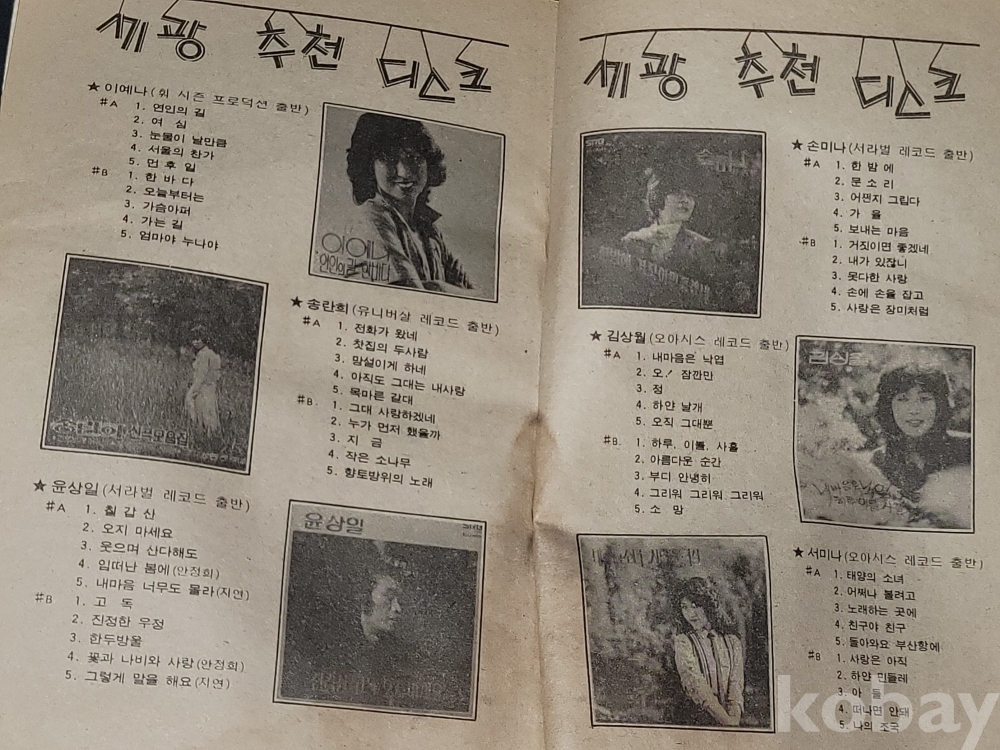 세광 추천 디스크
★ 이예나 (휘 시즌 프로덕션 출반)
#A 1. 연인의 길
2. 여 심
3. 눈물이 날만큼
4. 서울의 찬가
5. 먼 후 일
#B 1. 한 바 다
2. 오늘부터는
3. 가슴아퍼
4. 가는 길
5. 엄마야 누나야
이예나
연인의 길 한바다
★ 송란희 (유니버살 레코드 출반)
#A 1. 전화가 왔네
2. 찻집의 두사람
3. 망설이게 하네
4. 아직도 그대는 내사랑
5. 목마른 갈대
#B. 1. 그대 사랑하겠네
2. 누가 먼저 했을까
3. 지 금
4. 작은 소나무
5. 향토방위의 노래
신곡모음집
★ 윤상일 (서라벌 레코드 출반)
#A 1. 칠 갑 산
2. 오지 마세요
3. 웃으며 산다해도
4. 입떠난 봄에 (안정희)
5. 내마음 너무도 몰라 (지연)
#B 1. 고 독
2. 진정한 우정
3. 한두방울
4. 꽃과 나비와 사랑 (안정희)
5. 그렇게 말을 해요 (지연)
윤상일
세광 추천 디스크
손미나
★ 손미나 (서라벌 레코드 출반)
#A 1. 한 밤 에
2. 문 소 리
3. 어쩐지 그립다
4. 가 을
5. 보내는 마음
#B 1. 거짓이면 좋겠네
2. 내가 있잖니
3. 못다한 사랑
4. 손에 손을 잡고
5. 사랑은 장미처럼
★ 김상월 (오아시스 레코드 출반)
#A 1. 내마음은 낙엽
2. 오! 잠깐만
3. 정
4. 하얀 날개
5. 오직 그대뿐
#B. 1. 하루, 이틀, 사흘
2. 아름다운 순간
3. 부디 안녕히
4. 그리워 그리워 그리워
5. 소 망
★ 서미나 (오아시스 레코드 출반)
#A 1. 태양의 소녀
2. 어쩌나 볼려고
3. 노래하는 곳에
4. 친구야 친구
5. 돌아와요 부산항에
#B 1. 사랑은 아직
2. 하얀 민들레
3. 아 들
4. 떠나면 안돼
5. 나의 조국
kobay